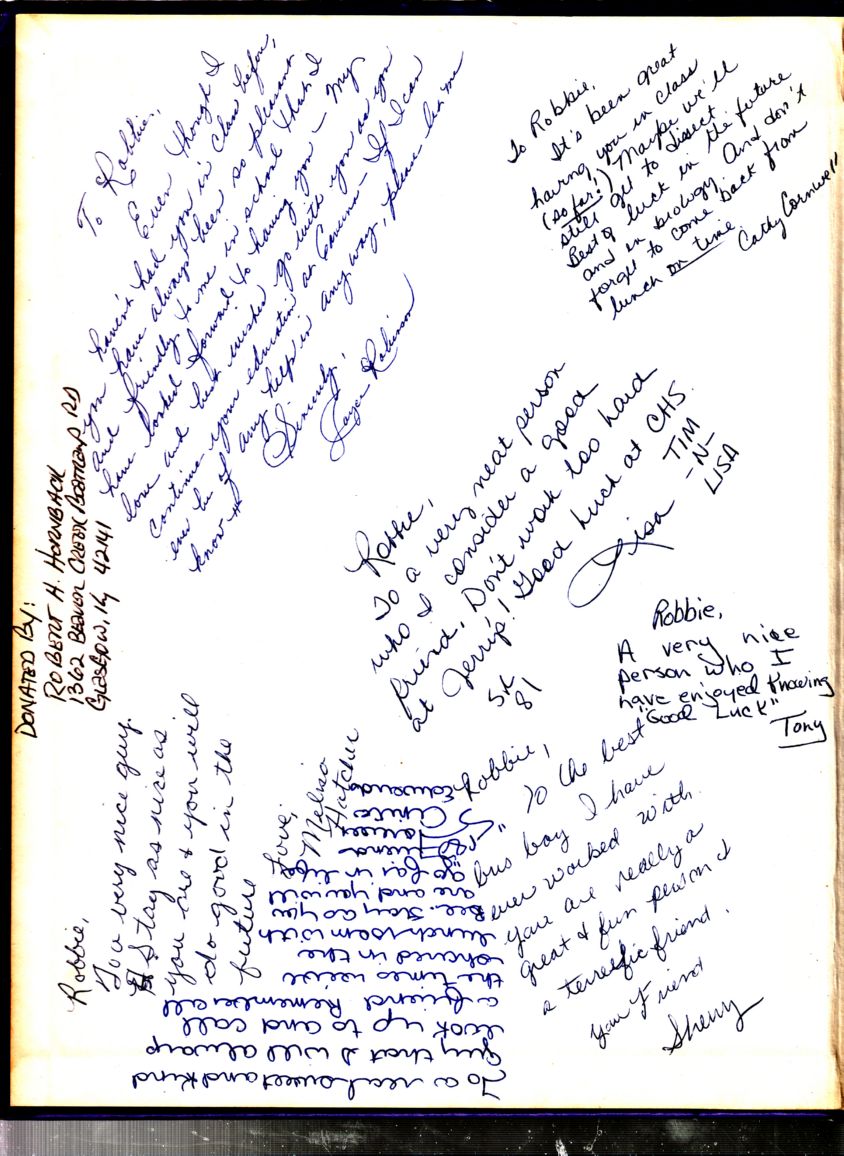 To Robbie,
Even though I
haven't had you in class before,
you have always been so pleasant
and friendly to me in school that I
have looked forward to having you – My
love and best wishes go with you as you
continue your education at Caverna – If I can
ever be of any help in any way, please let me
know
Sincerely,
Joyce Robinson
To Robbie,
It's been great
having you in class
(so far!) Maybe we'll
still get to dissect.
Best of luck in the future
and in biology. And don't
forget to come back from
lunch on time.
Cathy Cornwell
DONATED BY:
ROBERT H. HORNBACK
1362 BEAVER CREEK BOTTOMS RD
GLASGOW, Ky 42141
Robbie,
To a very neat person
who I consider a good
friend. Don't work too hard
at Jerry's! Good Luck at CHS.
Lisa
TIM
-N-
LISA
81
Robbie,
A very nice
person who I
have enjoyed knowing
"Good Luck"
Tony
Robbie,
You very nice guy.
Stay as nice as
you are & you will
do good in the
future
Love,
Melisa
Hatcher
Robbie,
"To the best
bus boy I have
ever worked with.
you are really a
great & fun person &
a terrific friend.
Your Friend
Sherry
To a real sweet and kind
guy that I will always
look up to and call
a friend. Remember all
the times we've
shared in the
lunchroom with
Bee. Stay as you
are and you will
go far in life
friend
always
Anita
Edwards